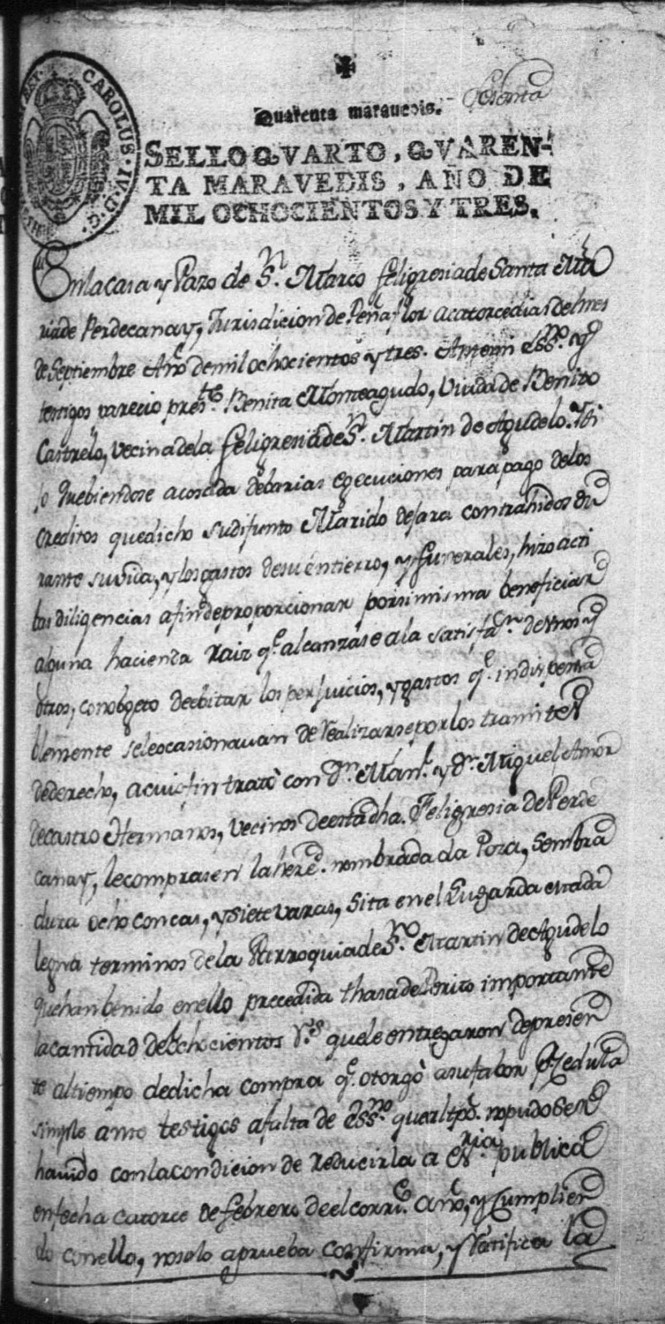 CAROLUS · IV · D · G ·
Quarenta maravedis.
SELLO QVARTO, QVAREN-
TA MARAVEDIS, AÑO DE
MIL OCHOCIENTOS Y TRES.
En la casa y Pazo de Sn. Marco feligresia de Santa Ma
ria de Perdecanay, Jurisdicion de Peñaflor a catorce dias del mes
de Septiembre Año de mil ochocientos y tres. Antemi Essno. y
testigos parecio preste. Benita Monteagudo, Viuda de Benito
Castrelo, vecina dela feligresia de Sn. Martin de Agudelo
qe. biendose acosada de barias egecuciones para pago delos
creditos que dicho su difunto Marido dejara contrahidos du
rante su vida, y los gastos de su entierro, y funerales, hizo acti
bas diligencias afin de proporcionar por si misma beneficiar
alguna hacienda Raiz qe. alcanzase ala satisfn. de unos y
otros, con objeto de ebitar los perjuicios, y gastos qe. indispensa
blemente sele ocasionavan de realizarse por los tramites
de derecho, a cuio fin trató con Dn. Manl. y Dn. Miguel Amor
de castro Hermanos, vecinos de esta dha. Feligresia de Perde
canay, le comprasen la hered. nombrada da Poza, sembra
dura ocho concas, y siete varas, sita en el Lugar da
legua terminos de la Parroquia de Sn. Martin de Agudelo
que han benido en ello precedida thasa de Perito importante
la cantidad de Ochocientos rs. que le entregaron de presen
te al tiempo de dicha compra qe. otorgó a su fabor Pr. Zedula
simple ante testigos a falta de Essno. que al tpo. no pudo ser
havido con la condicion de reducirla a Esria. publica
en fecha catorce de febrero de el corrte. año, y Cumplien
do con ello, no solo aprueba confirma, y Ratifica la